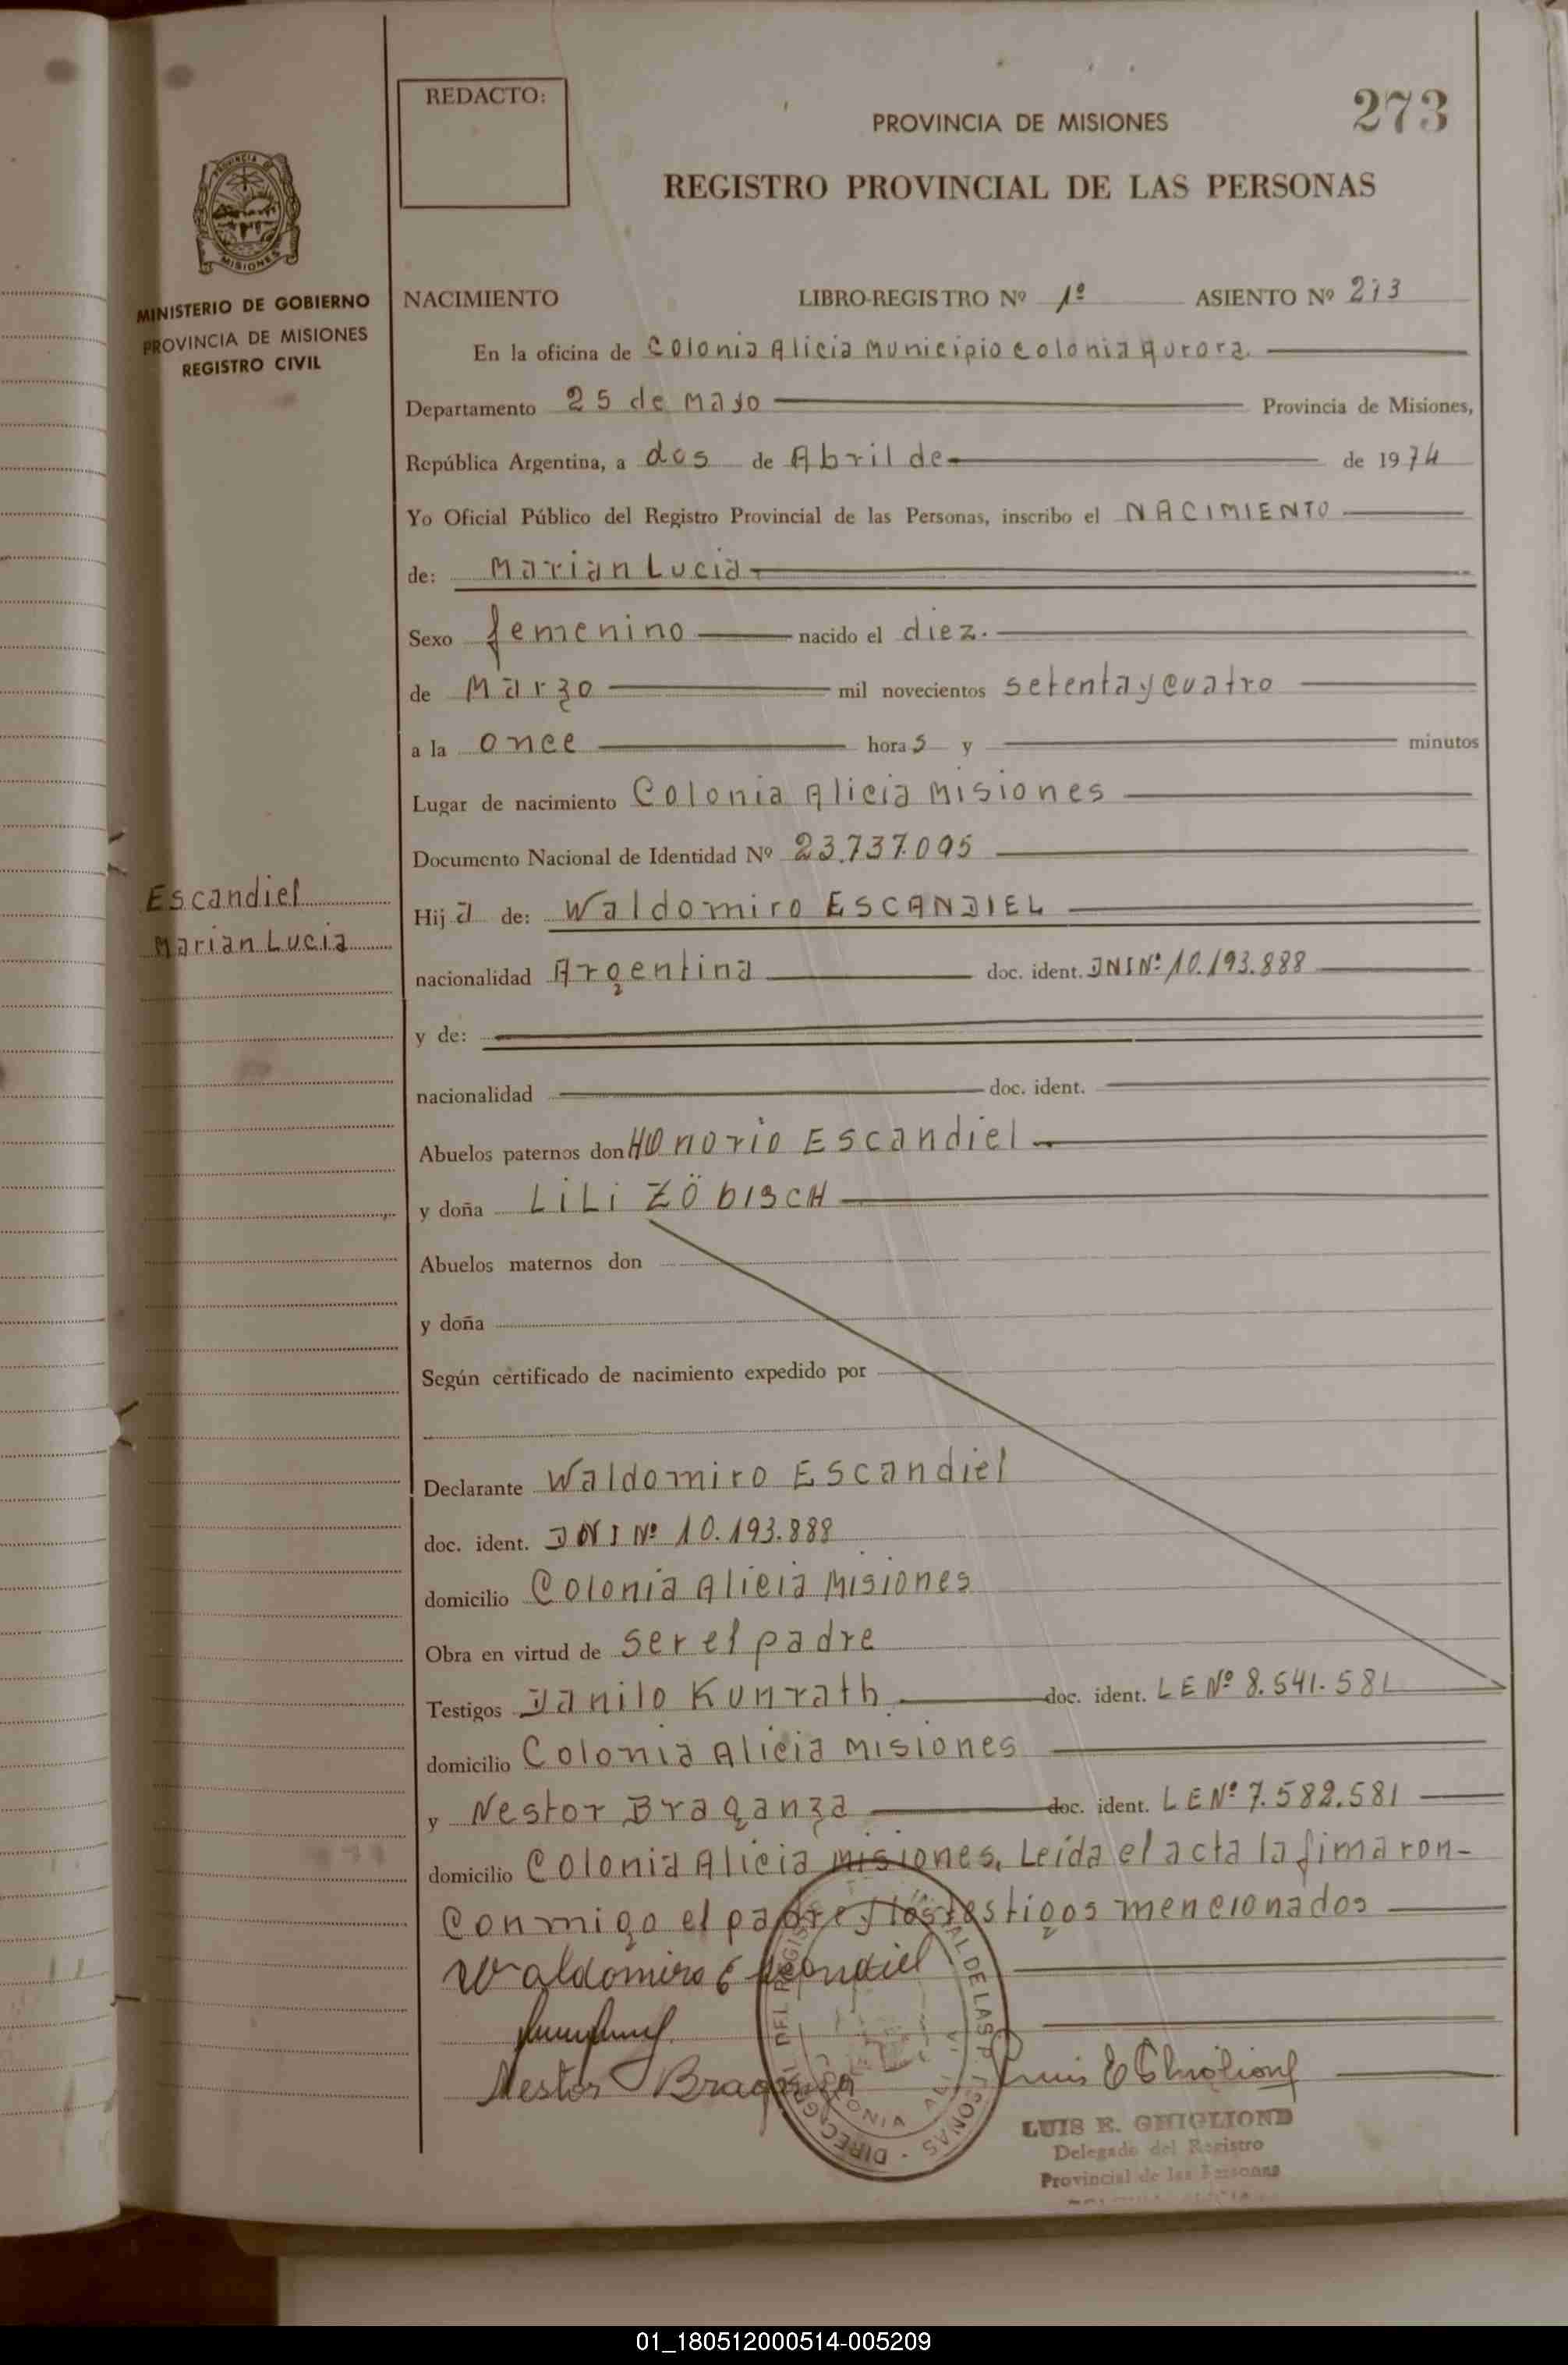 REDACTO:
273
PROVINCIA DE MISIONES
REGISTRO PROVINCIAL DE LAS PERSONAS
PROVINCIA DE
MISIONES
MINISTERIO DE GOBIERNO
PROVINCIA DE MISIONES
REGISTRO CIVIL
NACIMIENTO LIBRO-REGISTRO Nº 1º ASIENTO Nº 273
En la oficina de Colonia Alicia Municipio Colonia Aurora.
Departamento 25 de Mayo Provincia de Misiones,
República Argentina, a dos de Abril de de 1974
Yo Oficial Público del Registro Provincial de las Personas, inscribo el NACIMIENTO
de: Marian Lucia
Sexo femenino nacido el diez.
de Marzo mil novecientos setenta y cuatro
a la once horas y minutos
Lugar de nacimiento Colonia Alicia Misiones
Documento Nacional de Identidad Nº 23.737.095
Escandiel
Marian Lucia
Hija de: Waldomiro ESCANDIEL
nacionalidad Argentina doc. ident. DNI Nº 10.193.888
y de:
nacionalidad doc. ident.
Abuelos paternos don Honorio Escandiel
y doña LiLi ZÖbisCH
Abuelos maternos don
y doña
Según certificado de nacimiento expedido por
Declarante Waldomiro Escandiel
doc. ident. DNI Nº 10.193.888
domicilio Colonia Alicia Misiones
Obra en virtud de ser el padre
Testigos Danilo Kunrath doc. ident. LE Nº 8.541.581
domicilio Colonia Alicia Misiones
y Nestor Braganza doc. ident. LE Nº 7.582.581
domicilio Colonia Alicia Misiones. Leída el acta la fimaron-
Conmigo el padre y los testigos mencionados
Waldomiro Escandiel
Nestor Braganza
Luis E Ghiglione
LUIS E. GHIGLIONE
Delegado del Registro
Provincial de las Personas
01_180512000514-005209